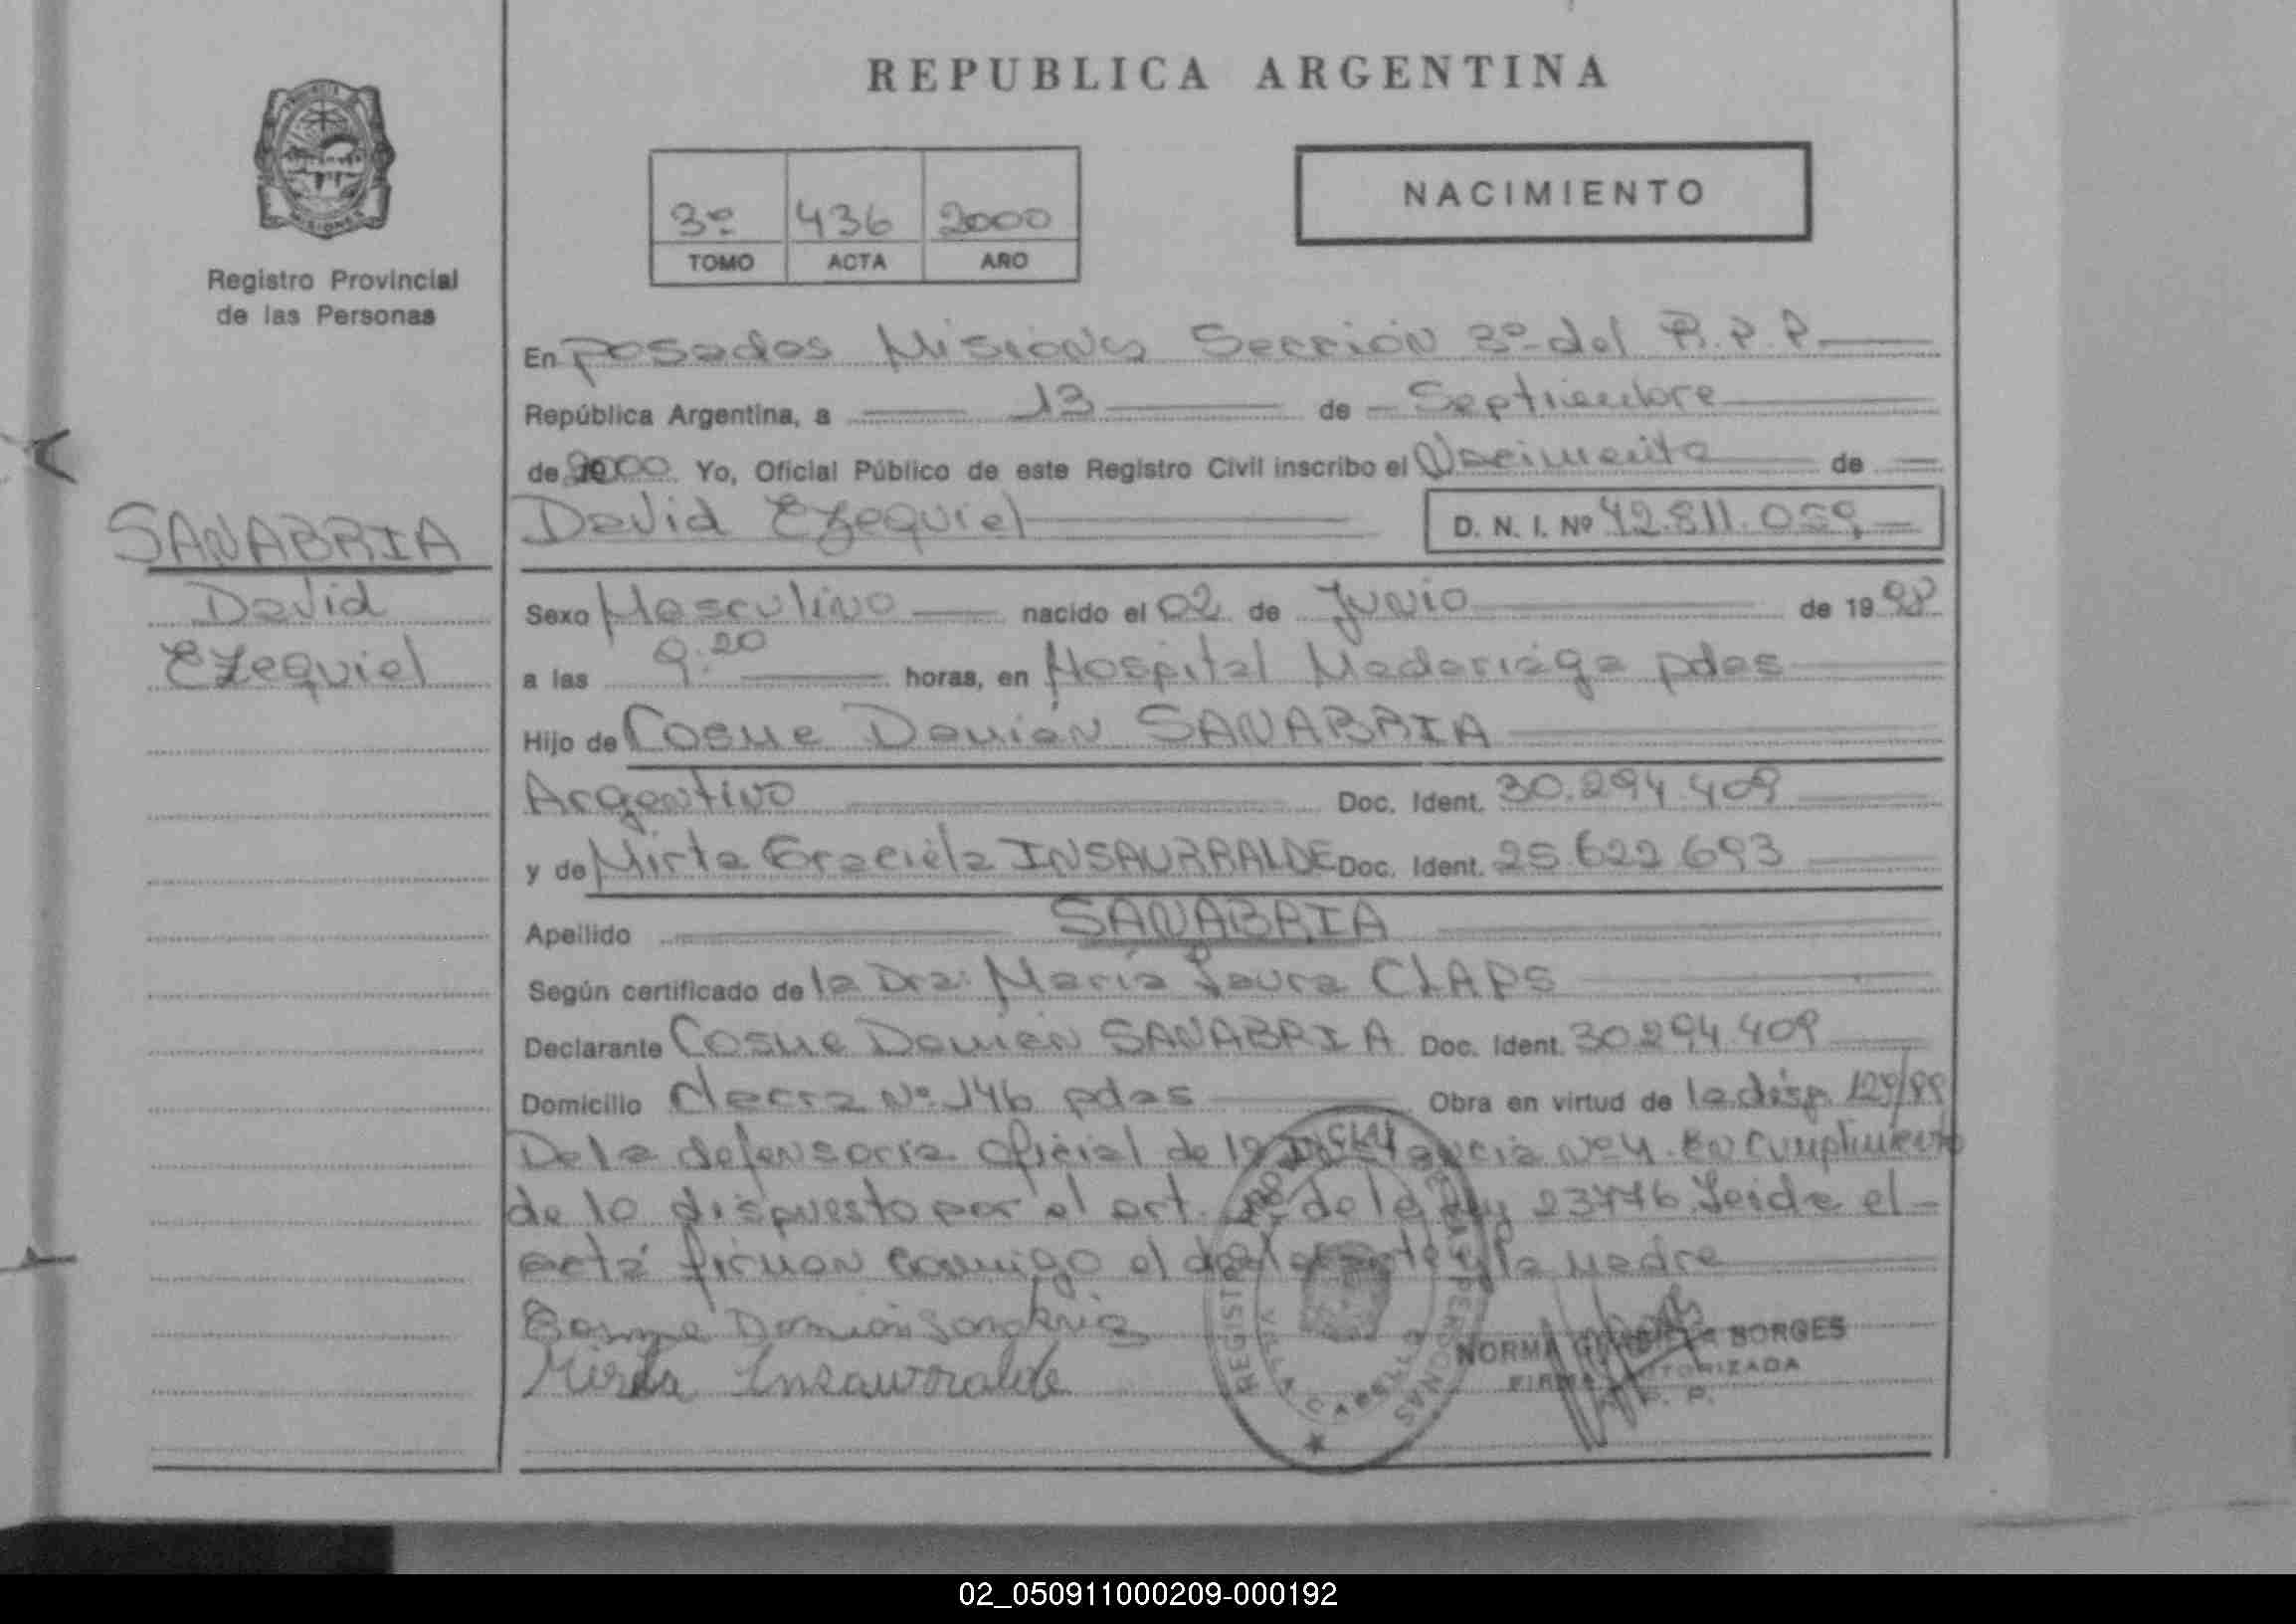 REPUBLICA ARGENTINA
NACIMIENTO
3º 436 2000
TOMO ACTA AÑO
Registro Provincial
de las Personas
En Posadas Misiones Sección 3º del R.P.P.
República Argentina, a 13 de Septiembre
de 2000 Yo, Oficial Público de este Registro Civil inscribo el Nacimiento de
David Ezequiel D. N. I. Nº 42.811.059
SANABRIA
David
Ezequiel
Sexo Masculino nacido el 02 de Junio de 19
a las 9:20 horas, en Hospital Madariaga pdas
Hijo de Cosme Damián SANABRIA
Argentino Doc. Ident. 30.294.409
y de Mirta Graciela INSAURRALDE Doc. Ident. 25.622.693
Apellido SANABRIA
Según certificado de la Dra: María Laura CLAPS
Declarante Cosme Damián SANABRIA Doc. Ident. 30.294.409
Domicilio Nº 146 pdas Obra en virtud de la disp.
De la defensoría oficial de Instancia Nº 4. En Cumplimiento
de lo dispuesto por el art. de la Ley 23776. Leida el
acta firman conmigo el declarante y la madre
Cosme Damián Sanabria
Mirta Insaurralde
NORMA BORGES
FIRMA AUTORIZADA
R. P. P.
02_050911000209-000192